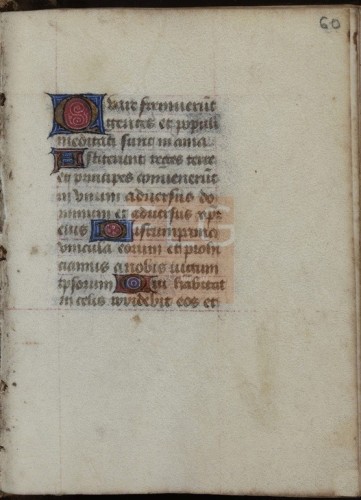 60
Quare fremuerūt
gentes et populi
meditati sunt inania
Astiterunt reges terre
et principes convenerūt
in unum adversus do
minum et adversus xpm
eius Disrumpamus
vincula eorum et proici
amus a nobis iugum
ipsorum Qui habitat
in celis irridebit eos et